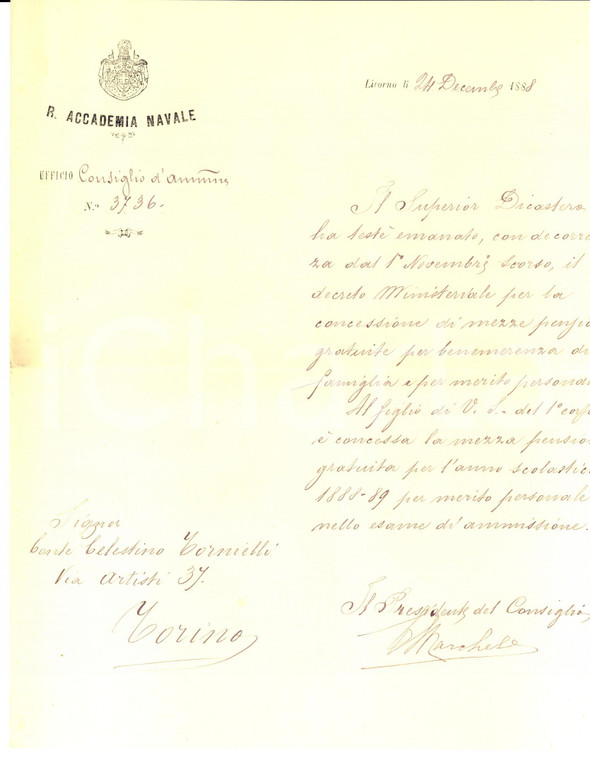 R. ACCADEMIA NAVALE
UFFICIO Consiglio d'Ammne
N.º 3736.
Livorno li 24 Decembre 1888
Il Superior Dicastero
ha testè emanato, con decorre
za dal 1º Novembre scorso, il
decreto Ministeriale per la
concessione di mezze pensio
gratuite per benemerenza di
famiglia e per merito persona
Al figlio di V. S. del 1º corso
è concessa la mezza pensio
gratuita per l'anno scolastic
1888-89 per merito personale
nello esame di ammissione.
Il Presidente del Consiglio
Marchese
Signor
Conte Celestino Tornielli
Via Artisti 37.
Torino